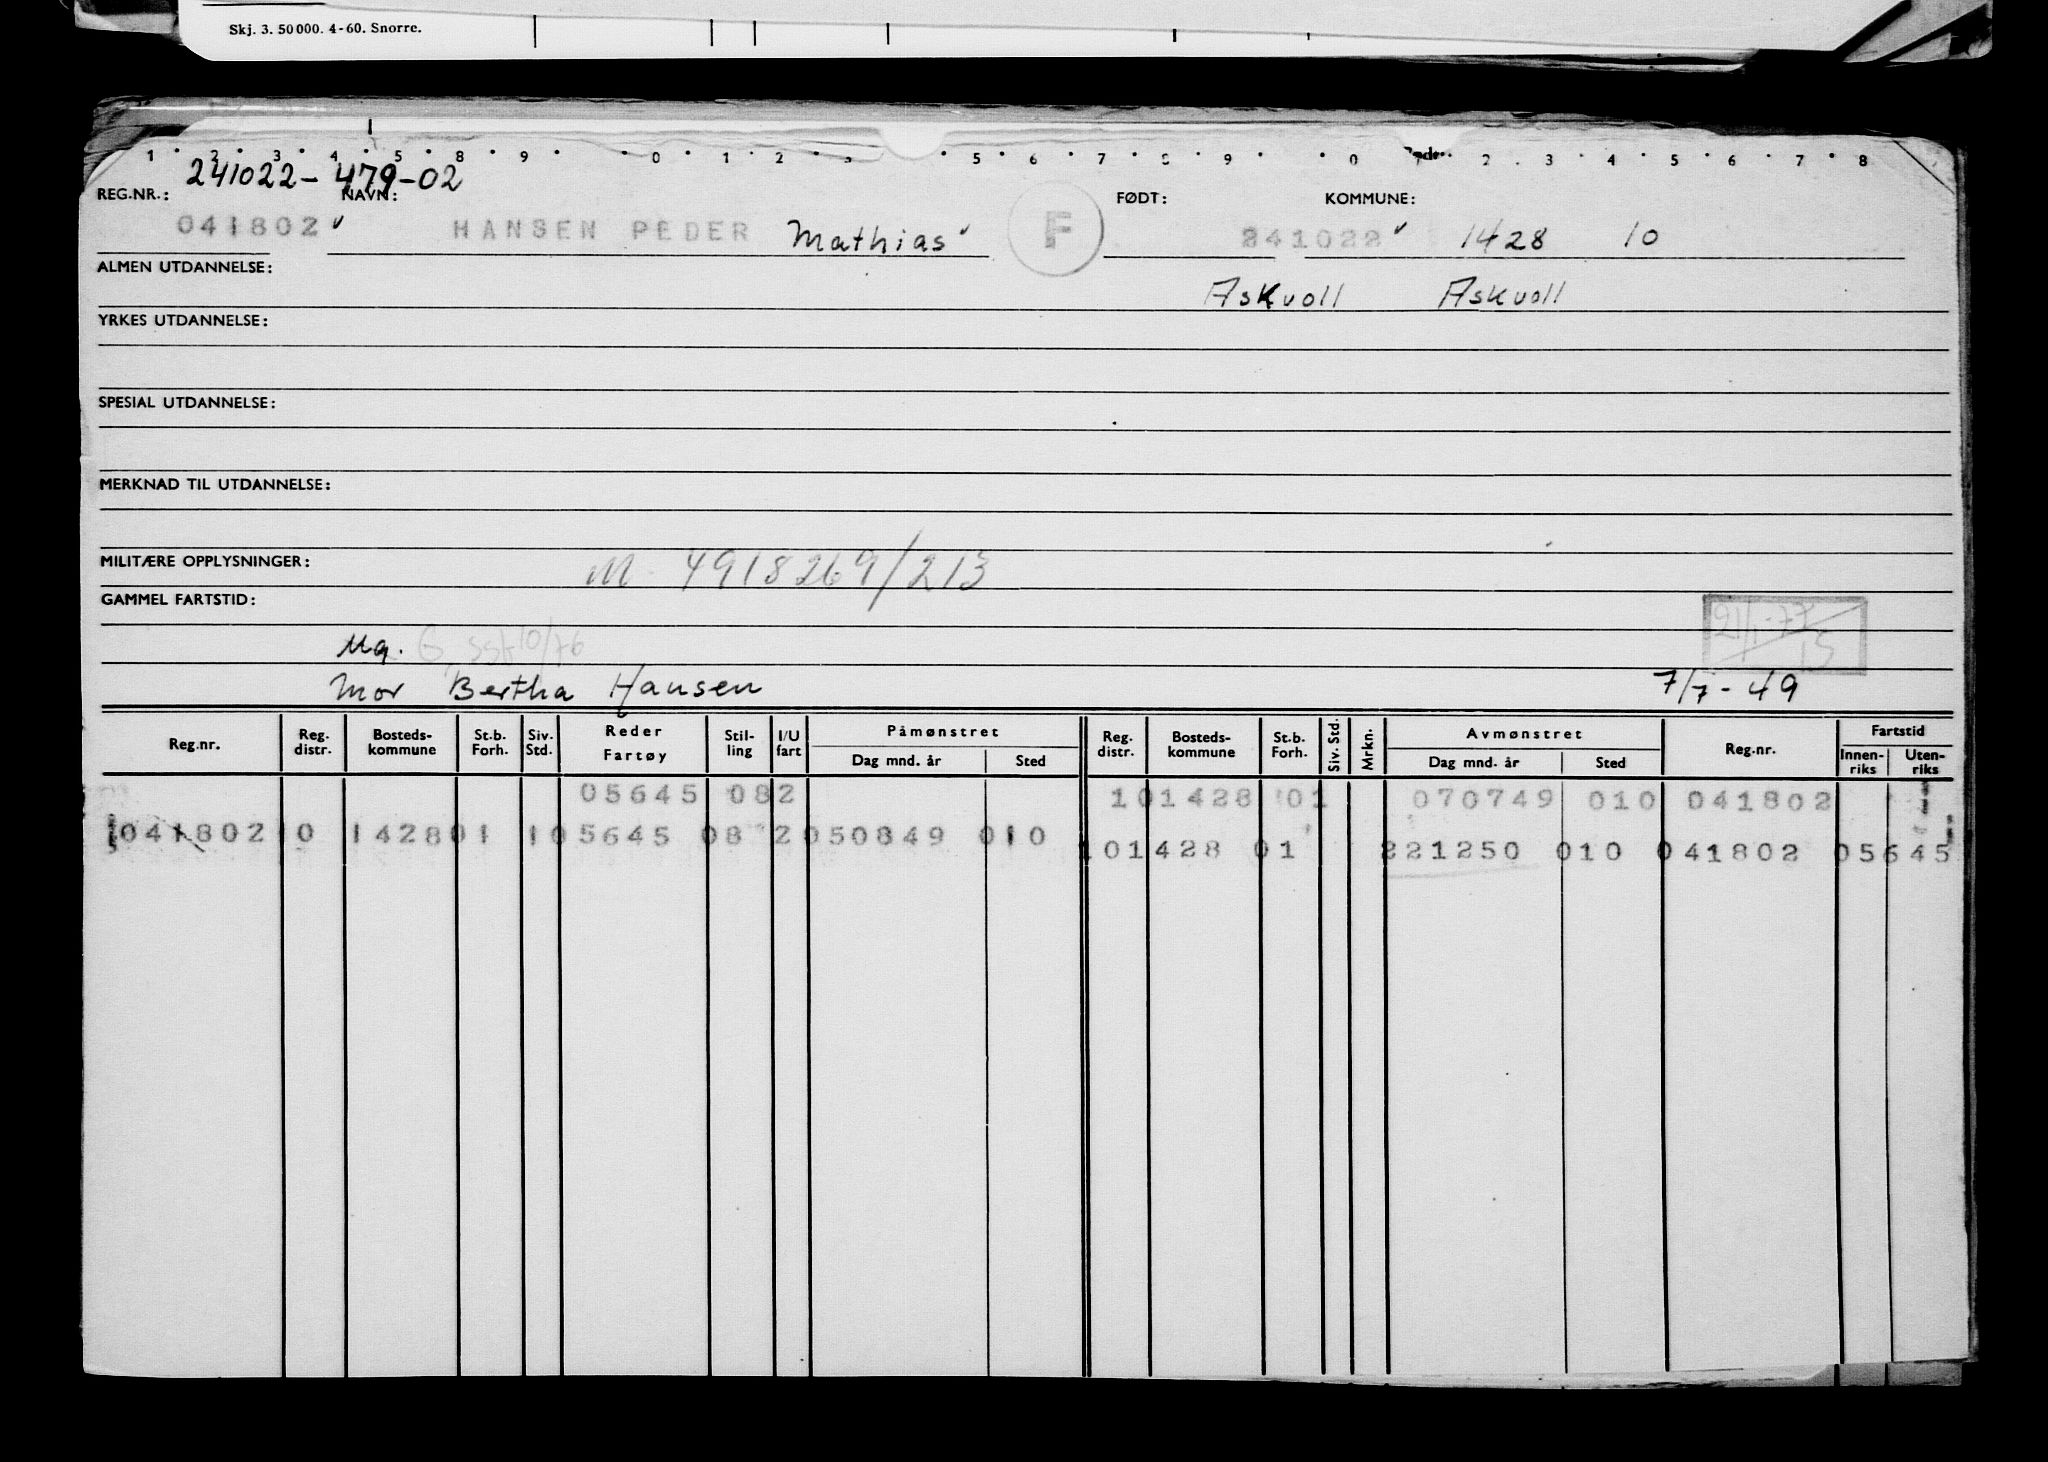 Skj. 3. 50 000. 4-60. Snorre.
241022-479-02
REG.NR.: NAVN: FØDT: KOMMUNE:
041802 HANSEN PEDER Mathias F 241022 1428 10
ALMEN UTDANNELSE: Askvoll Askvoll
YRKES UTDANNELSE:
SPESIAL UTDANNELSE:
MERKNAD TIL UTDANNELSE:
MILITÆRE OPPLYSNINGER: M. 4918269/213
GAMMEL FARTSTID:
Ug.
Mor Bertha Hansen 7/7-49
Reg.nr. Reg. distr. Bosteds-kommune St.b. Forh. Siv. Std. Reder Fartøy Stil-ling I/U fart Påmønstret Dag mnd. år Sted Reg. distr. Bosteds-kommune St.b. Forh. Siv. Std. Mrkn. Avmønstret Dag mnd. år Sted Reg.nr. Fartstid Innen-riks Uten-riks
05645 082 101428 01 070749 010 041802
041802 10 142801 105645 08 2050849 010
101428 01 221250 010 041802 05645